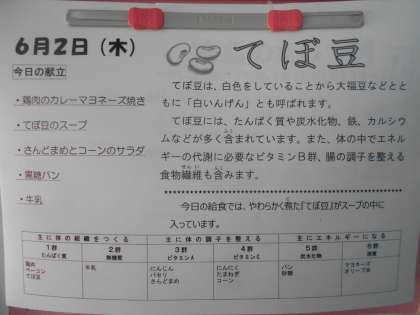 6月2日（木）
今日の献立
・鶏肉のカレーマヨネーズ焼き
・てぼ豆のスープ
・さんどまめとコーンのサラダ
・黒糖パン
・牛乳
てぼ豆
てぼ豆は、白色をしていることから大福豆などとと
もに「白いんげん」とも呼ばれます。
てぼ豆には、たんぱく質や炭水化物、鉄、カルシウ
ムなどが多く含まれています。また、体の中でエネル
ギーの代謝に必要なビタミンB群、腸の調子を整える
食物繊維も含みます。
今日の給食では、やわらかく煮た「てぼ豆」がスープの中に
入っています。
主に体の組織をつくる 主に体の調子を整える 主にエネルギーになる
1群 2群 3群 4群 5群 6群
たんぱく質 無機質 ビタミンA ビタミンC 炭水化物 脂質
鶏肉 牛乳 にんじん にんにく パン マヨネーズ
ベーコン パセリ たまねぎ 砂糖 オリーブ油
てぼ豆 さんどまめ コーン